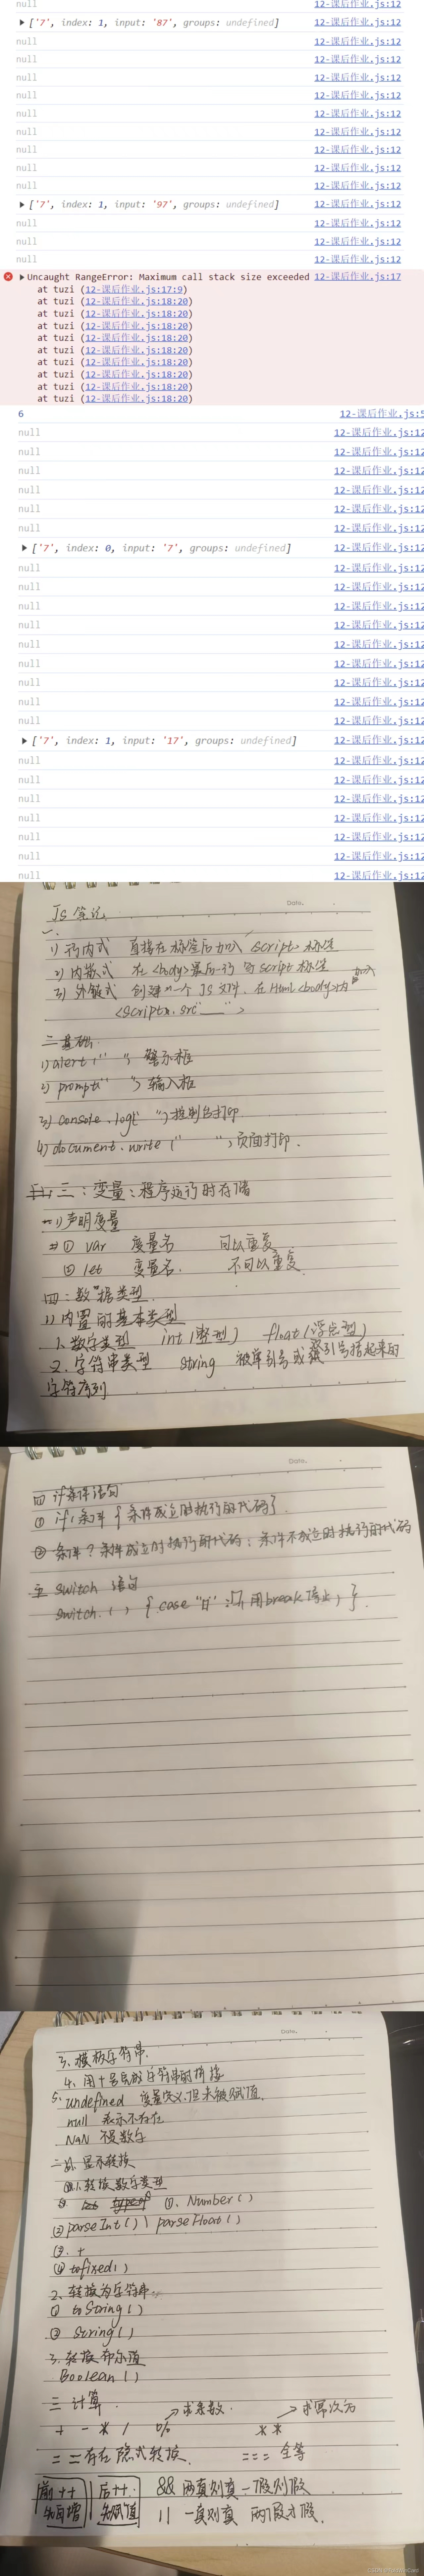 null 12-课后作业.js:12
▶ ['7', index: 1, input: '87', groups: undefined] 12-课后作业.js:12
null 12-课后作业.js:12
null 12-课后作业.js:12
null 12-课后作业.js:12
null 12-课后作业.js:12
null 12-课后作业.js:12
null 12-课后作业.js:12
null 12-课后作业.js:12
null 12-课后作业.js:12
null 12-课后作业.js:12
▶ ['7', index: 1, input: '97', groups: undefined] 12-课后作业.js:12
null 12-课后作业.js:12
null 12-课后作业.js:12
null 12-课后作业.js:12
▶ Uncaught RangeError: Maximum call stack size exceeded 12-课后作业.js:17
at tuzi (12-课后作业.js:17:9)
at tuzi (12-课后作业.js:18:20)
at tuzi (12-课后作业.js:18:20)
at tuzi (12-课后作业.js:18:20)
at tuzi (12-课后作业.js:18:20)
at tuzi (12-课后作业.js:18:20)
at tuzi (12-课后作业.js:18:20)
at tuzi (12-课后作业.js:18:20)
at tuzi (12-课后作业.js:18:20)
at tuzi (12-课后作业.js:18:20)
6 12-课后作业.js:5
null 12-课后作业.js:12
null 12-课后作业.js:12
null 12-课后作业.js:12
null 12-课后作业.js:12
null 12-课后作业.js:12
null 12-课后作业.js:12
▶ ['7', index: 0, input: '7', groups: undefined] 12-课后作业.js:12
null 12-课后作业.js:12
null 12-课后作业.js:12
null 12-课后作业.js:12
null 12-课后作业.js:12
null 12-课后作业.js:12
null 12-课后作业.js:12
null 12-课后作业.js:12
null 12-课后作业.js:12
null 12-课后作业.js:12
▶ ['7', index: 1, input: '17', groups: undefined] 12-课后作业.js:12
null 12-课后作业.js:12
null 12-课后作业.js:12
null 12-课后作业.js:12
null 12-课后作业.js:12
null 12-课后作业.js:12
null 12-课后作业.js:12
null 12-课后作业.js:12
Date.
Js 笔记
一、
1) 行内式 直接在标签后加入 script 标签
2) 内嵌式 在<body>最后一行 写 script 标签
3) 外链式 创建一个 JS 文件, 在Html <body>内 加入
<script src="">
二 基础
1) alert (" ") 警示框
2) prompt(" ") 输入框
3) console.log(" ") 控制台打印
4) document.write (" "), 页面打印.
三：变量：程序运行时存储
1) 声明变量
① var 变量名 可以重复
② let 变量名. 不可以重复
四：数据类型
1) 内置的基本类型
1. 数字类型 int (整型) float (浮点型)
2. 字符串类型 string 被单引号或双引号括起来的
字符序列
Date.
四 if条件语句
① if (条件 { 条件成立时执行的代码 }.
② 条件 ? 条件成立时执行的代码 : 条件不成立时执行的代码
五 switch 语句
switch. ( ) { case 用break停止 } .
Date.
3. 模板字符串.
4. 用+号完成字符串的拼接
5. undefined 变量定义但未被赋值.
null 表示不存在
NaN 不是数字
二 显示转换
1. 转换数字类型
①. Number ( )
② parseInt ( ) \ parseFloat ( )
③. +
④ tofixed( )
2. 转换为字符串
① toString ( )
② String( )
3. 转换布尔值
Boolean ( )
三 计算. →求余数. →求幂次方
+ - * / % **
== 存在隐式转换. === 全等
前++ 后++ && 两真则真 一假则假
先自增 先赋值 || 一真则真 两假才假.